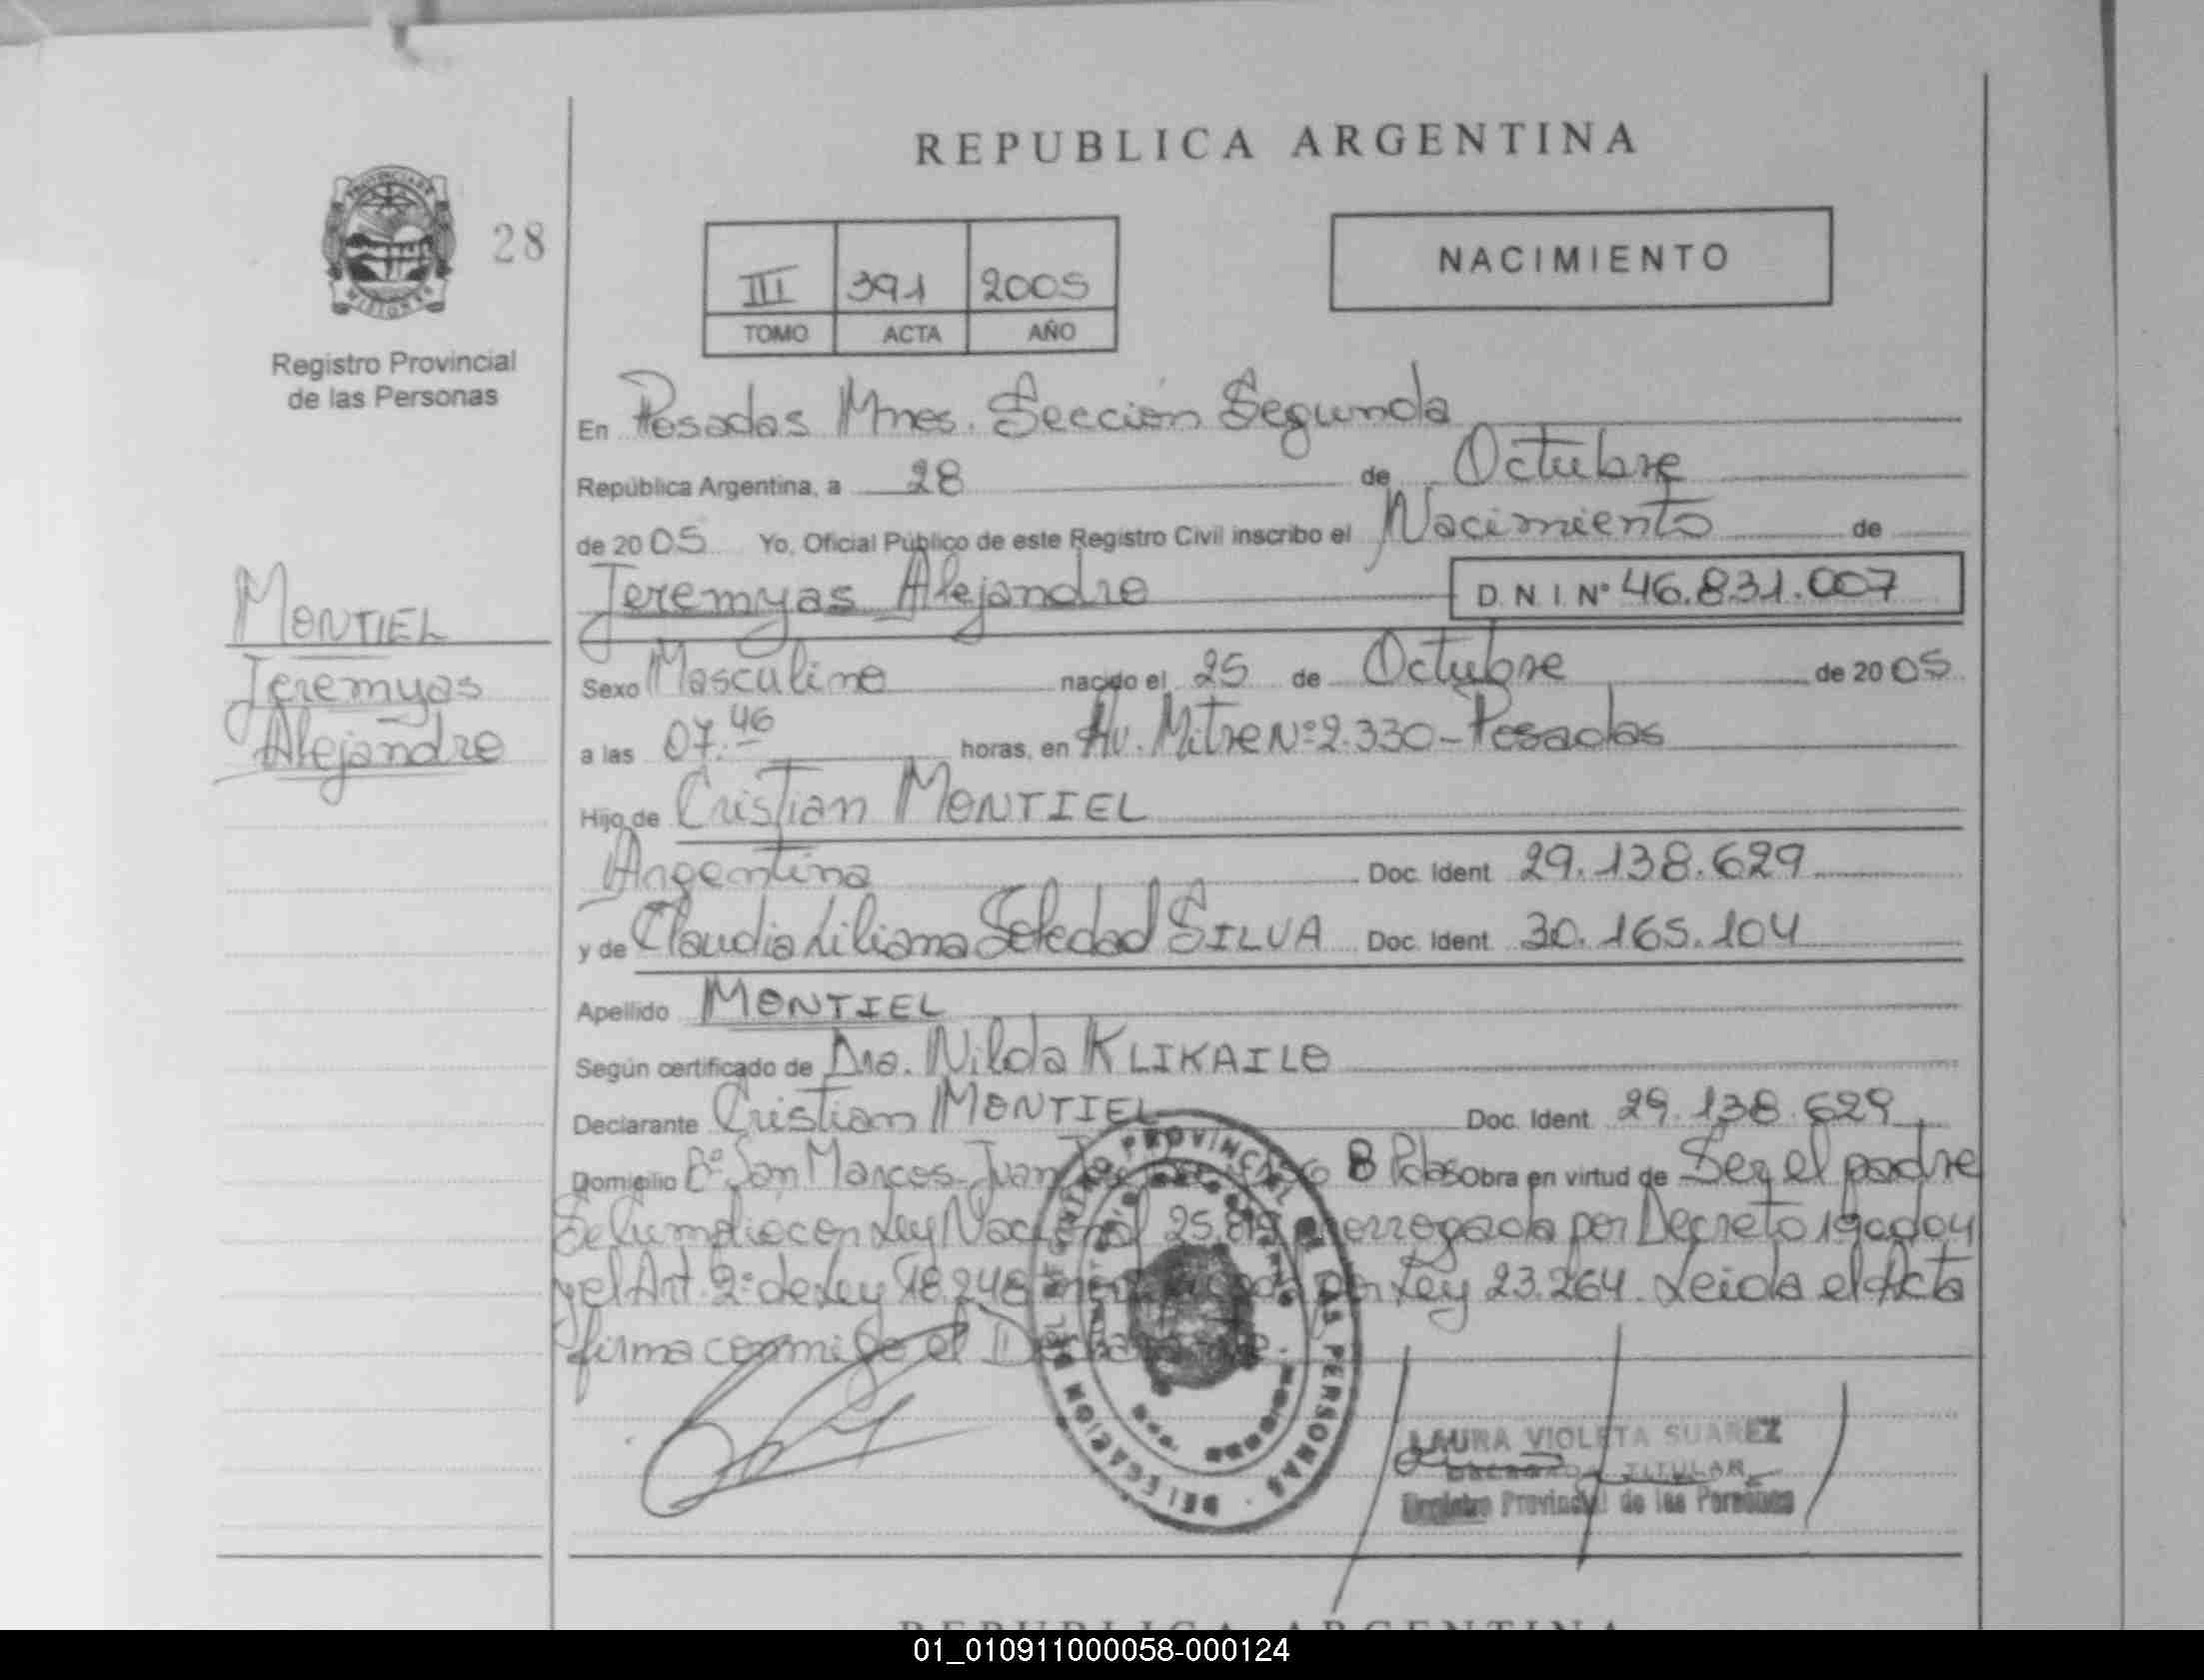 REPUBLICA ARGENTINA
PROVINCIA DE
MISIONES
28
Registro Provincial
de las Personas
NACIMIENTO
III 391 2005
TOMO ACTA AÑO
En Posadas Mnes. Sección Segunda
República Argentina, a 28 de Octubre
de 2005 Yo, Oficial Público de este Registro Civil inscribo el Nacimiento de
Jeremyas Alejandro D.N.I. Nº 46.831.007
MONTIEL
Jeremyas
Alejandro
Sexo Masculino nacido el 25 de Octubre de 2005
a las 07.46 horas, en Av. Mitre Nº 2.330 - Posadas
Hijo de Cristian MONTIEL
Argentina Doc. Ident. 29.138.629
y de Claudia Liliana Soledad SILVA Doc. Ident. 30.165.104
Apellido MONTIEL
Según certificado de Dra. Nilda KLIKAILO
Declarante Cristian MONTIEL Doc. Ident. 29.138.629
Domicilio Bº San Marcos - Juan B Pdas Obra en virtud de Ser el padre
Se Cumplio con Ley Nacional 25.819 prorrogada por Decreto
y el Art. 2º de Ley 18.248 por Ley 23.264. Leida el Acta
firma conmigo el Declarante.
DELEGACION REGISTRO PROVINCIAL DE LAS PERSONAS
LAURA VIOLETA SUAREZ
DELEGADA TITULAR
Registro Provincial de las Personas
REPUBLICA ARGENTINA
01_010911000058-000124